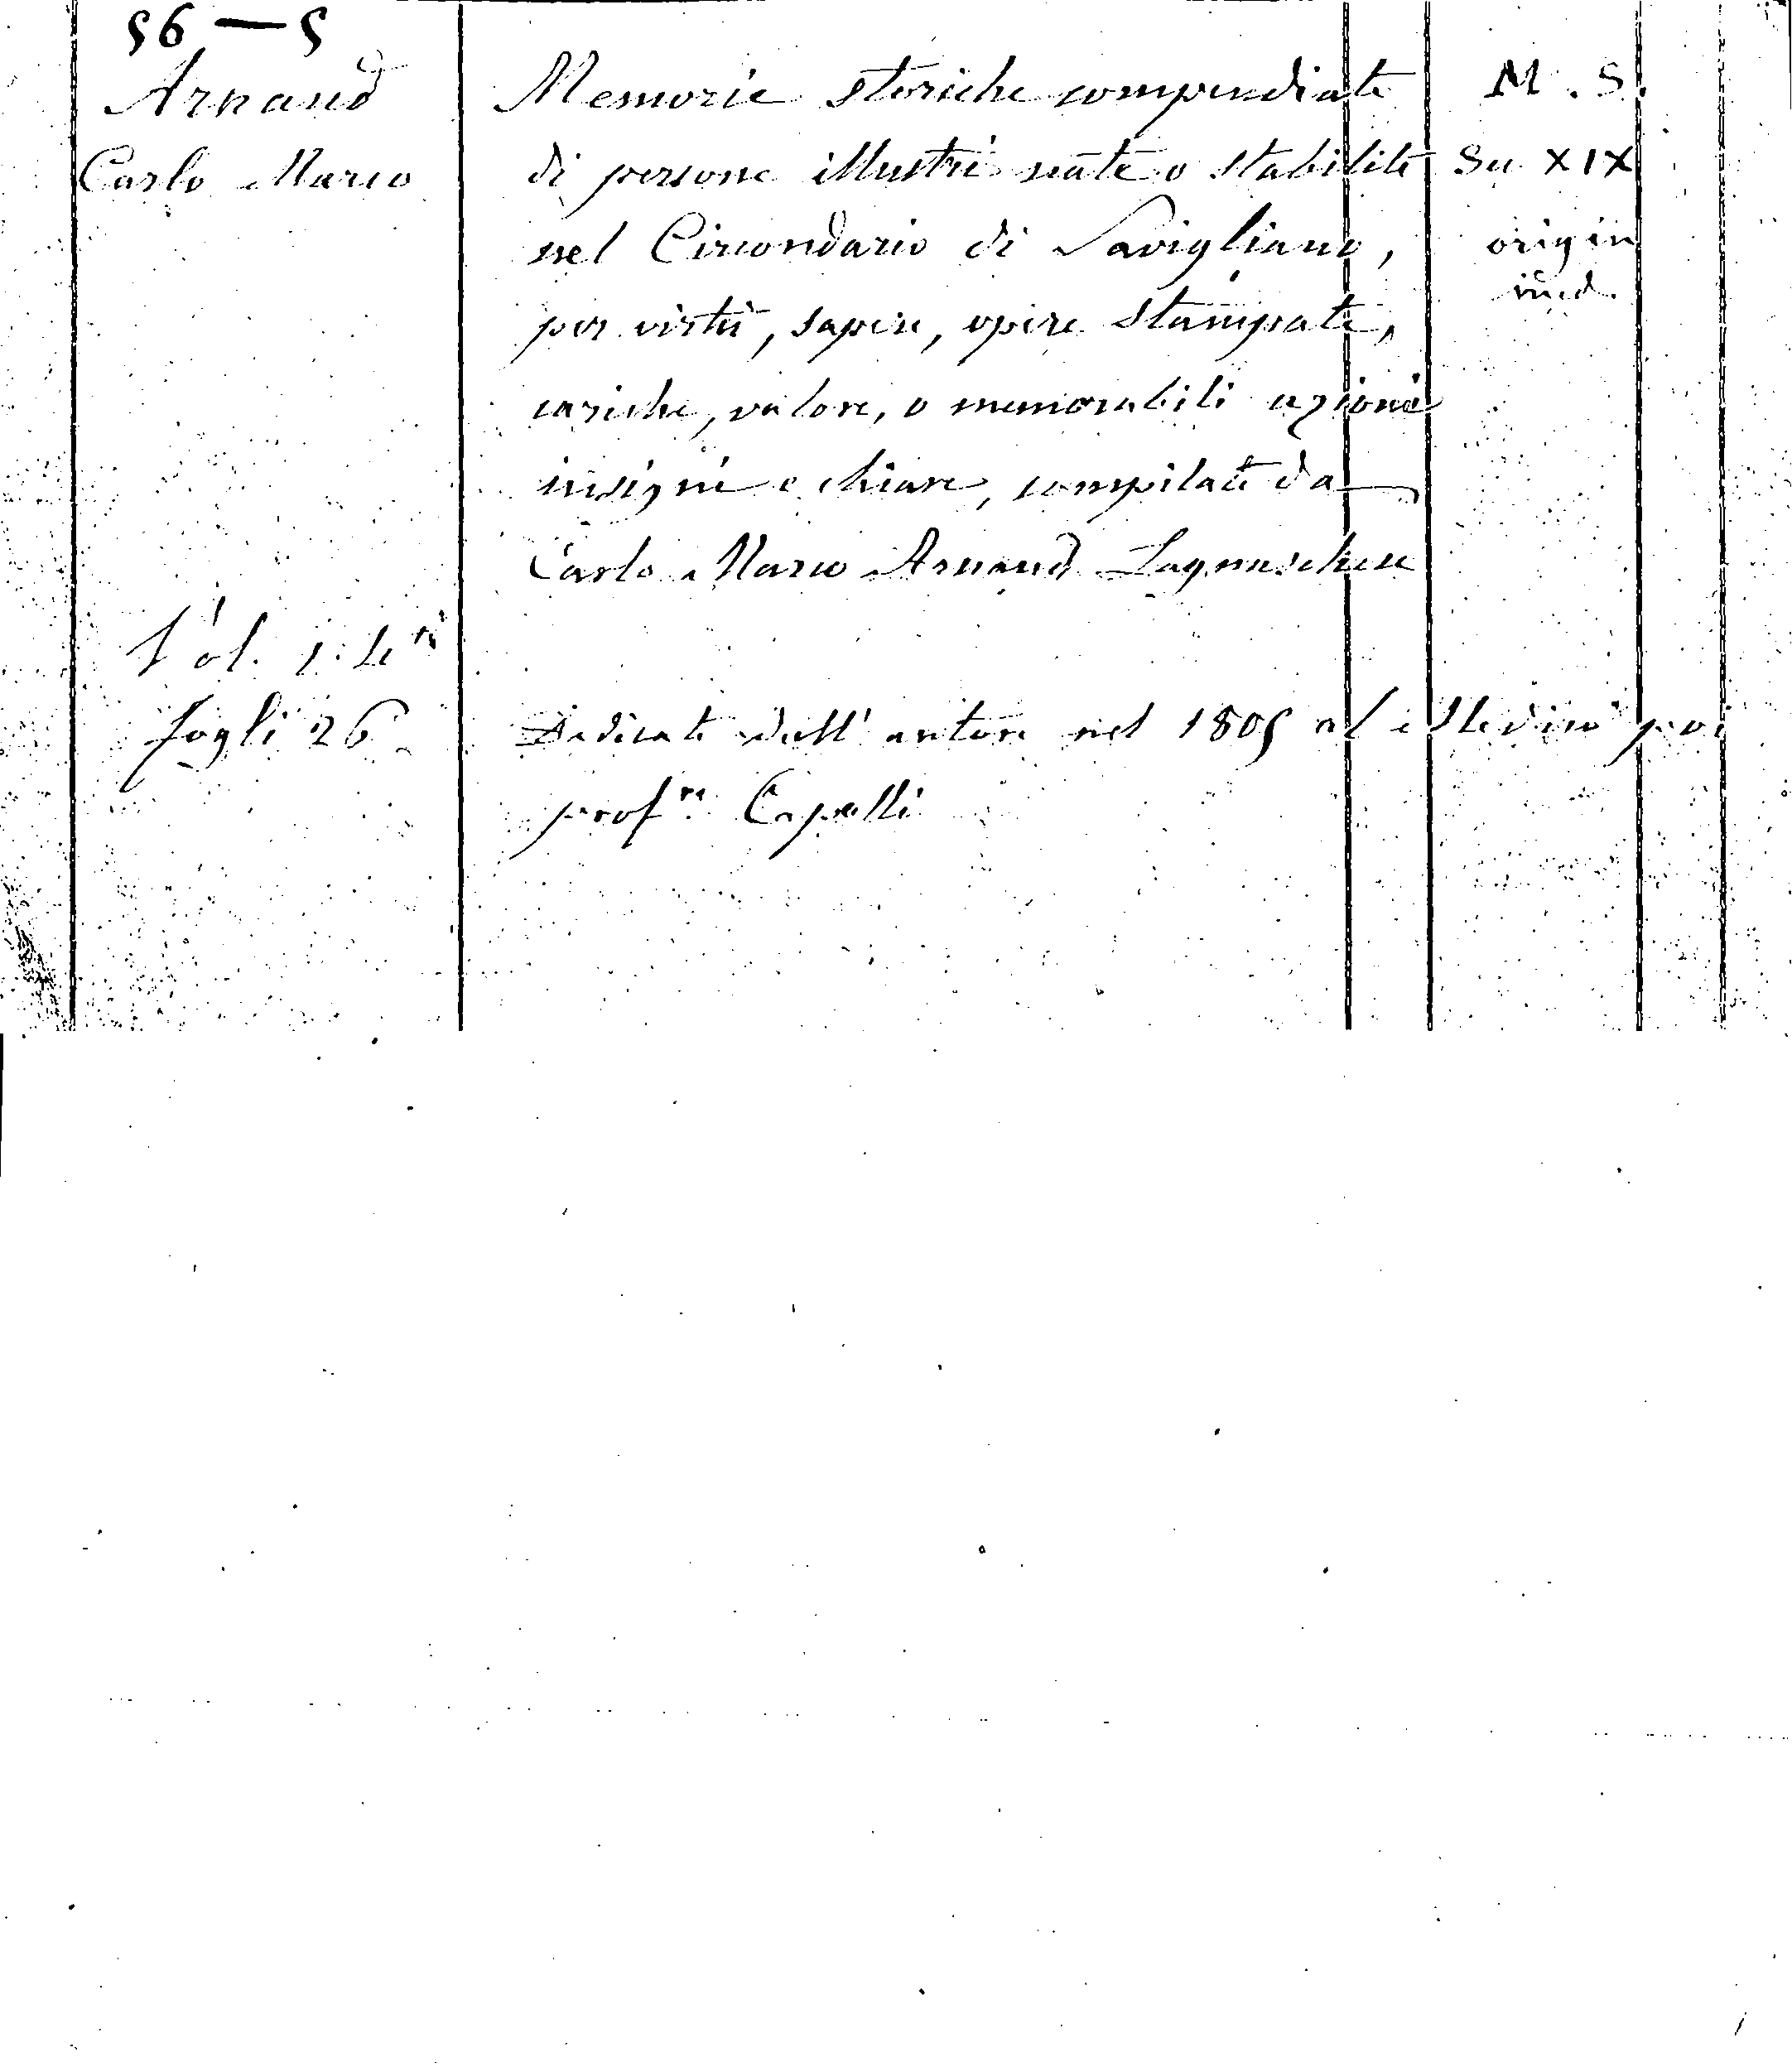 56 — 5
Arnaud
Carlo Marco
Vol. 1. 4to
fogli 26
Memorie storiche compendiate
di persone illustri nate o stabilite
nel Circondario di Savigliano,
per virtù, sapere, opere stampate,
cariche, valore, o memorabili azioni
insigni e chiare, compilate da
Carlo Marco Arnaud Lagnaschese
Dedicate dall' autore nel 1805 al Medico poi
profre Capelli
M. S.
Sec XIX
origin
ined.